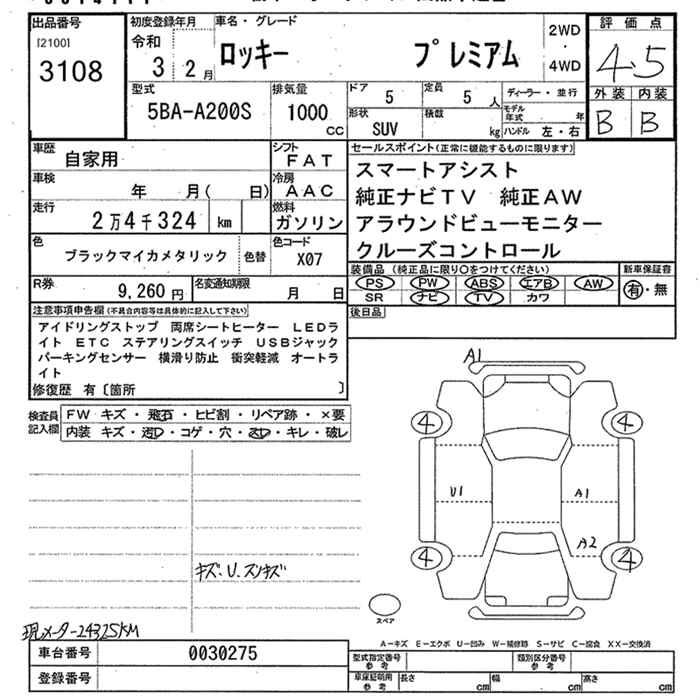 出品番号
[2100]
3108
初度登録年月
令和
3 2月
車名・グレード
ロッキー プレミアム
2WD
・
4WD
評価点
4.5
外装 内装
B B
型式
5BA-A200S
排気量
1000
cc
ドア
5
定員
5 人
形状
SUV
積載
kg
ディーラー・並行
モデル年式 年
ハンドル 左・右
車歴
自家用
シフト
FAT
車検
年 月( 日)
冷房
AAC
走行
2万4千324 km
燃料
ガソリン
色
ブラックマイカメタリック
色替
色コード
X07
R券
9,260円
名変通知期限
月 日
セールスポイント(正常に機能するものに限ります)
スマートアシスト
純正ナビTV 純正AW
アラウンドビューモニター
クルーズコントロール
装備品(純正品に限り○をつけてください)
PS PW ABS エアB AW
SR ナビ TV カワ
新車保証書
有・無
後日品
注意事項申告欄(不具合内容等は具体的に記入して下さい)
アイドリングストップ 両席シートヒーター LEDラ
イト ETC ステアリングスイッチ USBジャック
パーキングセンサー 横滑り防止 衝突軽減 オートラ
イト
修復歴 有〔箇所 〕
検査員
記入欄
FW キズ・飛石・ヒビ割・リペア跡・×要
内装 キズ・汚レ・コゲ・穴・スレ・キレ・破レ
A1
4 4
U1 A1
A2
4 4
キズ.U.スリキズ
スペア
現メーター24325KM
A-キズ E-エクボ U-凹み W-補修跡 S-サビ C-腐食 XX-交換済
車台番号
0030275
登録番号
型式指定番号
参考
類別区分番号
参考
車庫証明用
参考
長さ cm 幅 cm 高さ cm